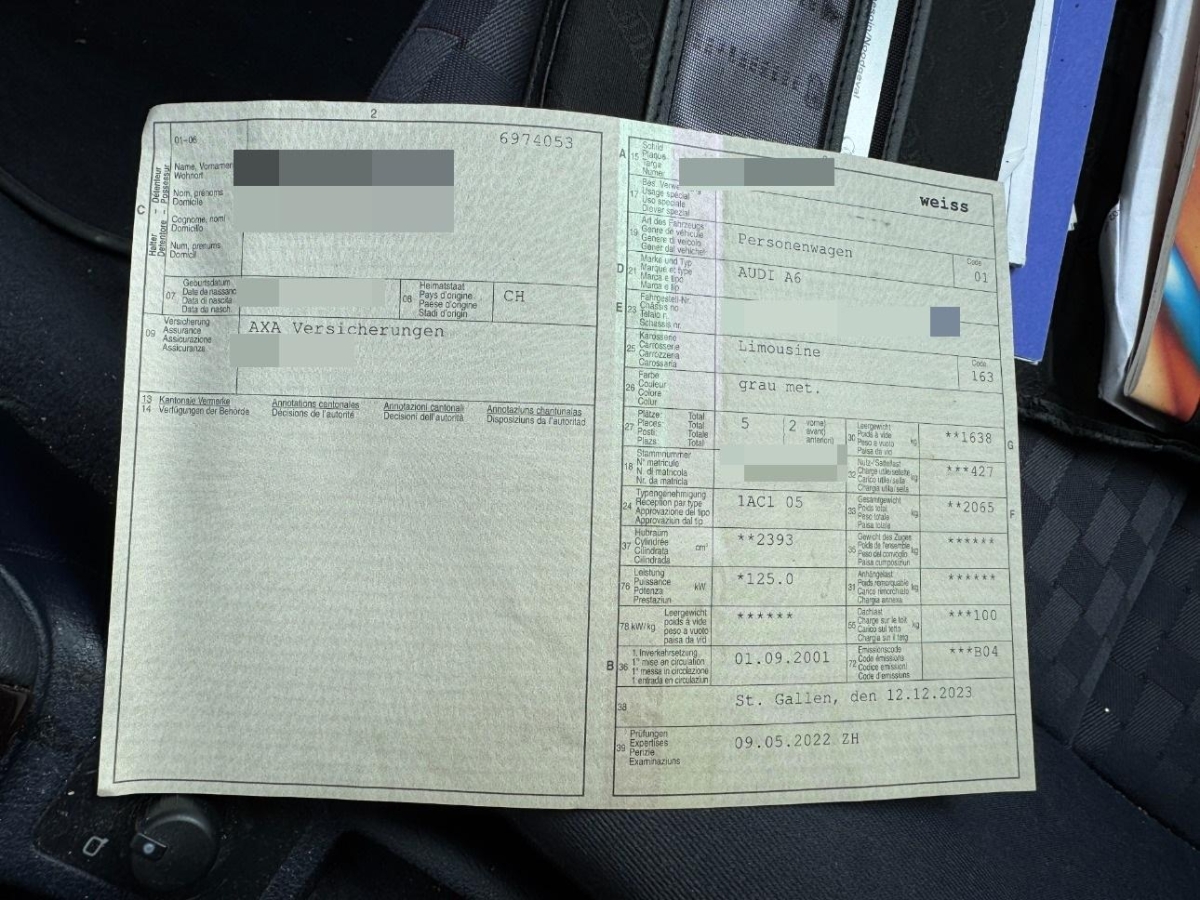 2
01-06
6974053
C
Halter - Détenteur
Detentore - Possessur
Name, Vornamen
Wohnort
Nom, prénoms
Domicile
Cognome, nomi
Domicilio
Num, prenums
Domicil
07
Geburtsdatum
Date de naissance
Data di nascita
Data da nasch.
08
Heimatstaat
Pays d'origine
Paese d'origine
Stadi d'origin
CH
09
Versicherung
Assurance
Assicurazione
Assicuranza
AXA Versicherungen
13
14
Kantonale Vermerke
Verfügungen der Behörde
Annotations cantonales
Décisions de l'autorité
Annotazioni cantonali
Decisioni dell'autorità
Annotaziuns chantunalas
Disposiziuns da l'autoritad
A
15
Schild
Plaque
Targa
Numer
weiss
17
Usage spécial
Uso speciale
Diever spezial
19
Art des Fahrzeugs
Genre de véhicule
Genere di veicolo
Gener dal vehichel
Personenwagen
Code
01
D
21
Marke und Typ
Marque et type
Marca e tipo
Marca e tip
AUDI A6
E
23
Fahrgestell-Nr.
Châssis no
Telaio n.
Schassis nr.
25
Karosserie
Carrosserie
Carrozzeria
Carossaria
Limousine
Code
163
26
Farbe
Couleur
Colore
Colur
grau met.
27
Plätze: Total
Places: Total
Posti: Totale
Plazs: Total
5
2
vorne)
avant)
anteriori)
30
Leergewicht
Poids à vide
Peso a vuoto
Paisa da vid
kg
**1638
G
18
Stammnummer
N° matricule
N. di matricola
Nr. da matricla
32
Nutz-/Sattellast
Charge utile/sellette
Carico utile/sella
Chargia utila/sella
kg
***427
24
Typengenehmigung
Réception par type
Approvazione del tipo
Approvaziun dal tip
1AC1 05
33
Gesamtgewicht
Poids total
Peso totale
Paisa totala
kg
**2065
F
37
Hubraum
Cylindrée
Cilindrata
Cilindrada
cm³
**2393
35
Gewicht des Zuges
Poids de l'ensemble
Peso del convoglio
Paisa cumposiziun
kg
******
76
Leistung
Puissance
Potenza
Prestaziun
kW
*125.0
31
Anhängelast
Poids remorquable
Carico rimorchiato
Chargia annexa
kg
******
78 kW/kg
Leergewicht
poids à vide
peso a vuoto
paisa da vid
******
55
Dachlast
Charge sur le toit
Carico sul tetto
Chargia sin il tetg
kg
***100
B
36
1. Inverkehrsetzung
1re mise en circulation
1a messa in circolazione
1 entrada en circulaziun
01.09.2001
72
Emissionscode
Code émissions
Codice emissioni
Code d'emissiuns
***B04
38
St. Gallen, den 12.12.2023
39
Prüfungen
Expertises
Perizie
Examinaziuns
09.05.2022 ZH